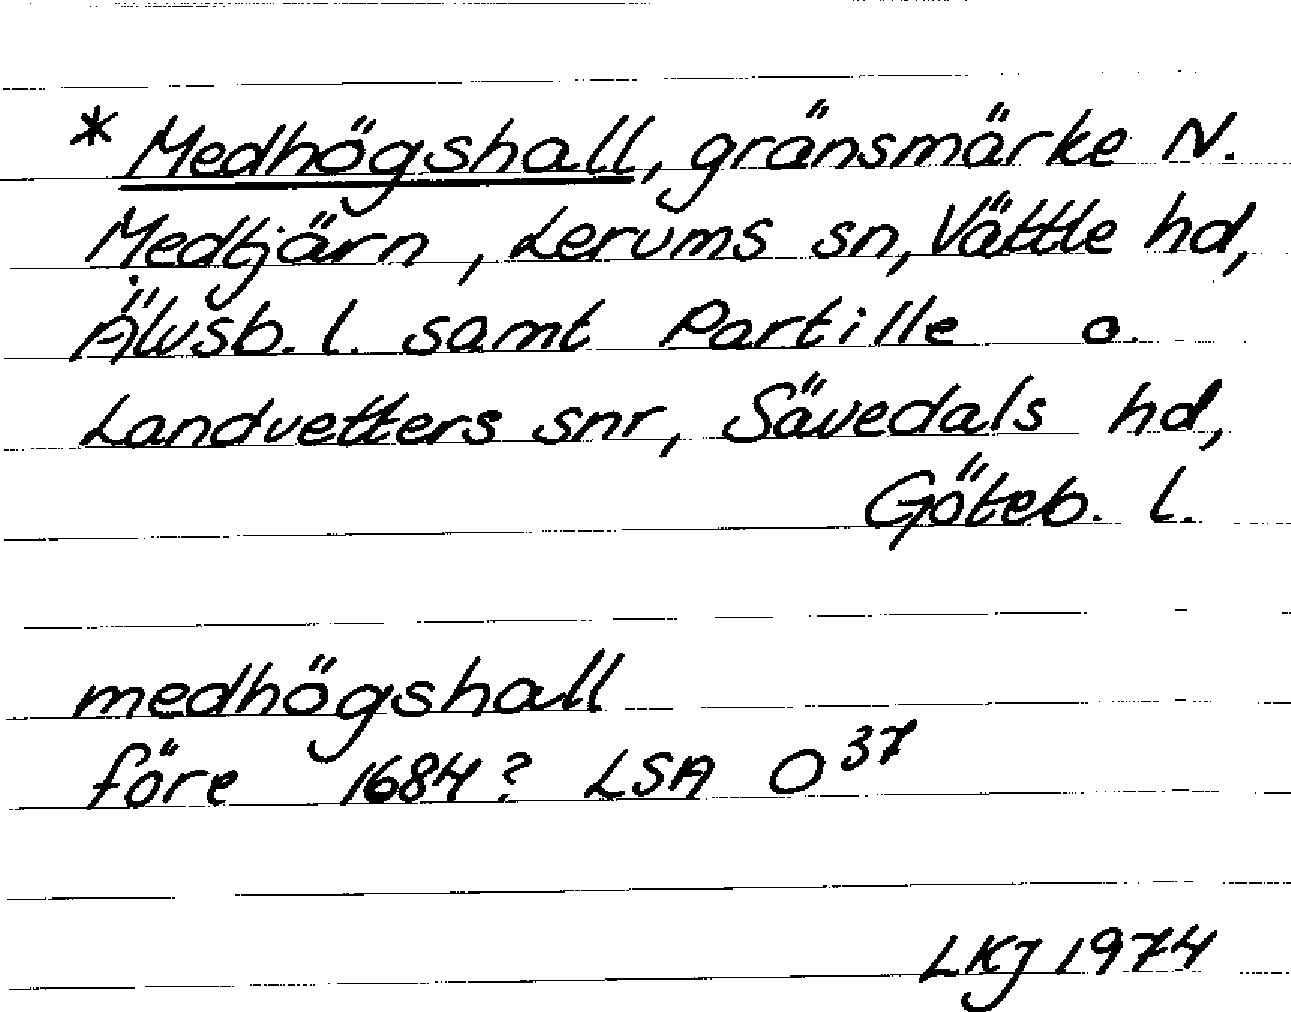 * Medhögshall, gränsmärke N.
Medtjärn, Lerums sn, Vättle hd,
Älvsb. l. samt Partille o.
Landvetters snr, Sävedals hd,
Göteb. l.
medhögshall
före 1684? LSA O37
LKJ 1974